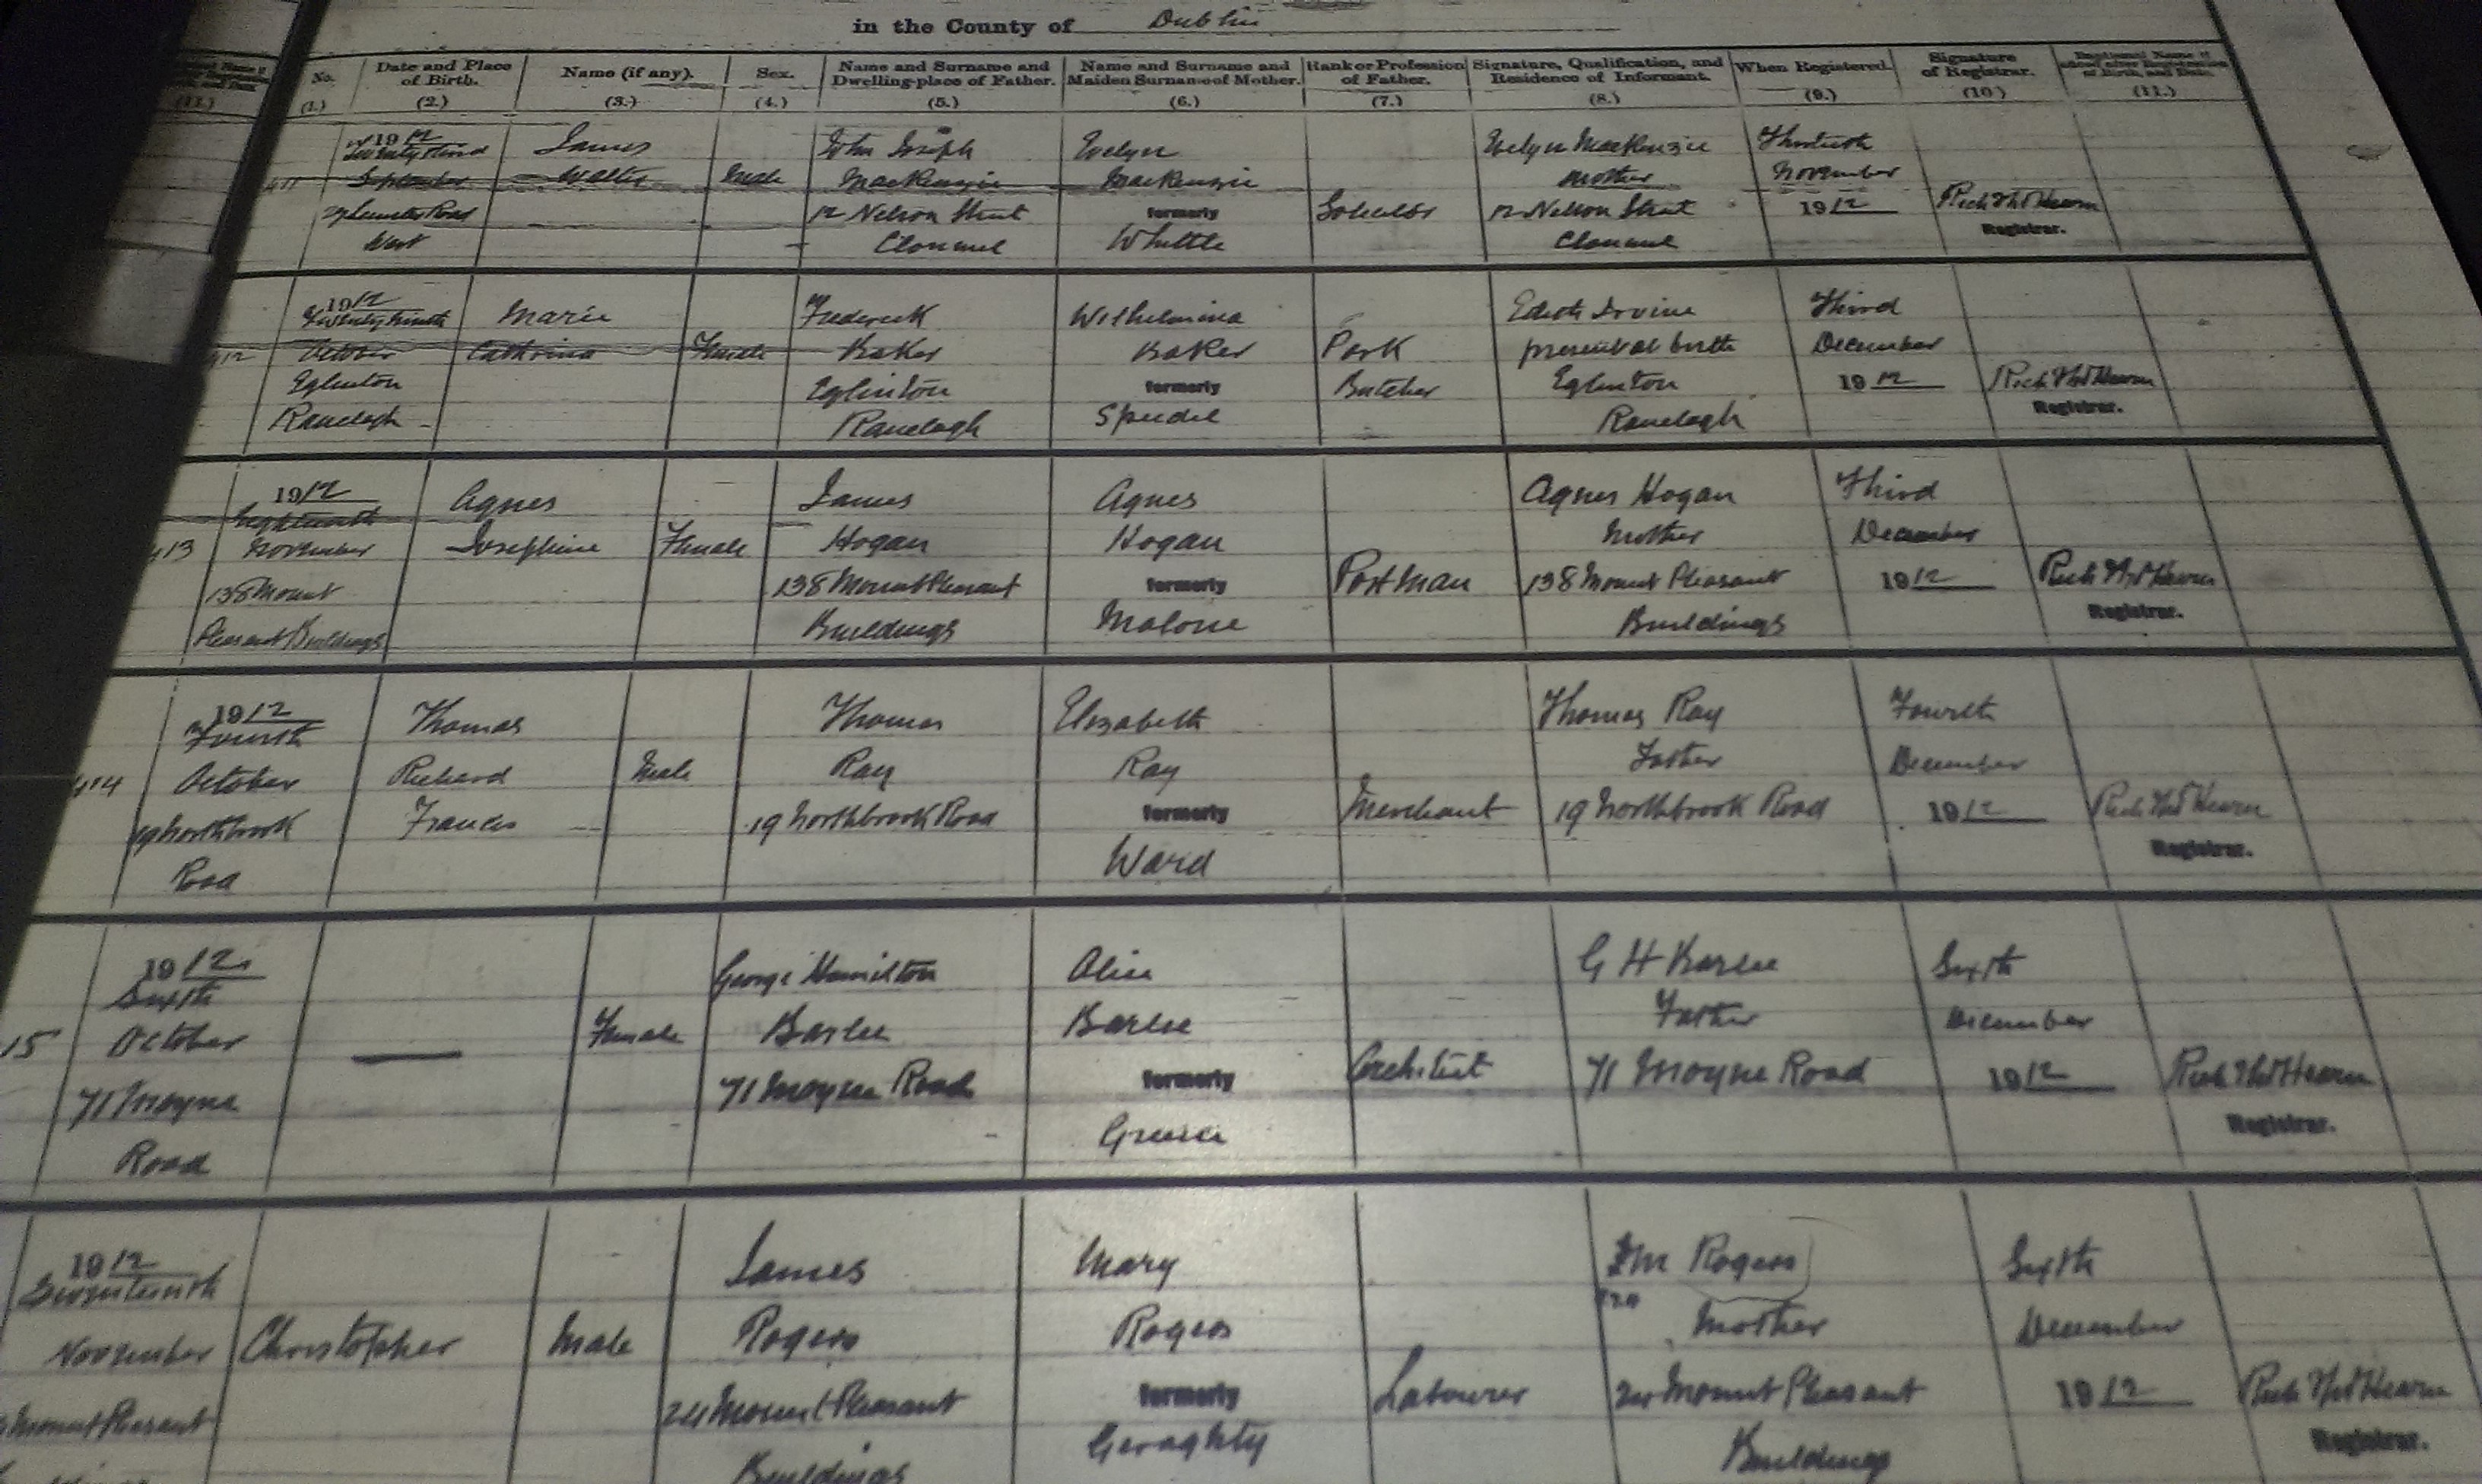 in the County of Dublin
No. Date and Place Name (if any). Sex. Name and Surname and Name and Surname and Rank or Profession Signature, Qualification, and When Registered. Signature
of Birth. Dwelling-place of Father. Maiden Surname of Mother. of Father. Residence of Informant. of Registrar.
(11.) (1.) (2.) (3.) (4.) (5.) (6.) (7.) (8.) (9.) (10.) (11.)
1912 James John Joseph Evelyn Evelyn MacKenzie Thirtieth
September Walter Male MacKenzie MacKenzie Mother November
Road 12 Nelson Street formerly 12 Nelson Street 1912
West Clonmel Whittle Clonmel Registrar.
1912 Marie Frederick Wilhelmina Edith Irvine Third
October Female Baker Baker Pork present at birth December
Eglinton Eglinton formerly Butcher Eglinton 1912
Ranelagh Ranelagh Speidel Ranelagh Registrar.
1912 Agnes James Agnes Agnes Hogan Third
Eighteenth
413 November Josephine Female Hogan Hogan Mother December
138 Mount 138 Mount Pleasant formerly Postman 138 Mount Pleasant 1912
Pleasant Buildings Buildings Malone Buildings Registrar.
1912
Fourth Thomas Thomas Elizabeth Thomas Ray Fourth
414 October Richard Male Ray Ray Father December
19 Northbrook Francis 19 Northbrook Road formerly Merchant 19 Northbrook Road 1912
Road Ward Registrar.
1912 George Hamilton Alice G H Barlee Sixth
Sixth
15 October — Female Barlee Barlee Father December
71 Moyne 71 Moyne Road formerly Architect 71 Moyne Road 1912
Road Greene Registrar.
1912 James Mary Rogers Sixth
Seventeenth
November Christopher Male Rogers Rogers Mother December
Mount Pleasant 24 Mount Pleasant formerly Labourer 24 Mount Pleasant 1912
Buildings Geraghty Buildings Registrar.